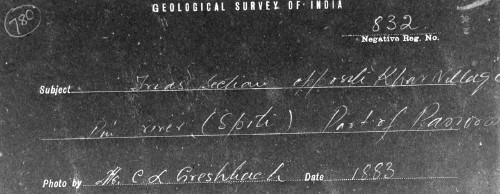 GEOLOGICAL SURVEY OF INDIA
780
832
Negative Reg. No.
Subject Trias section opposite Khar Village
Pin river (Spiti) Part of
Photo by C L Greisbach Date 1883